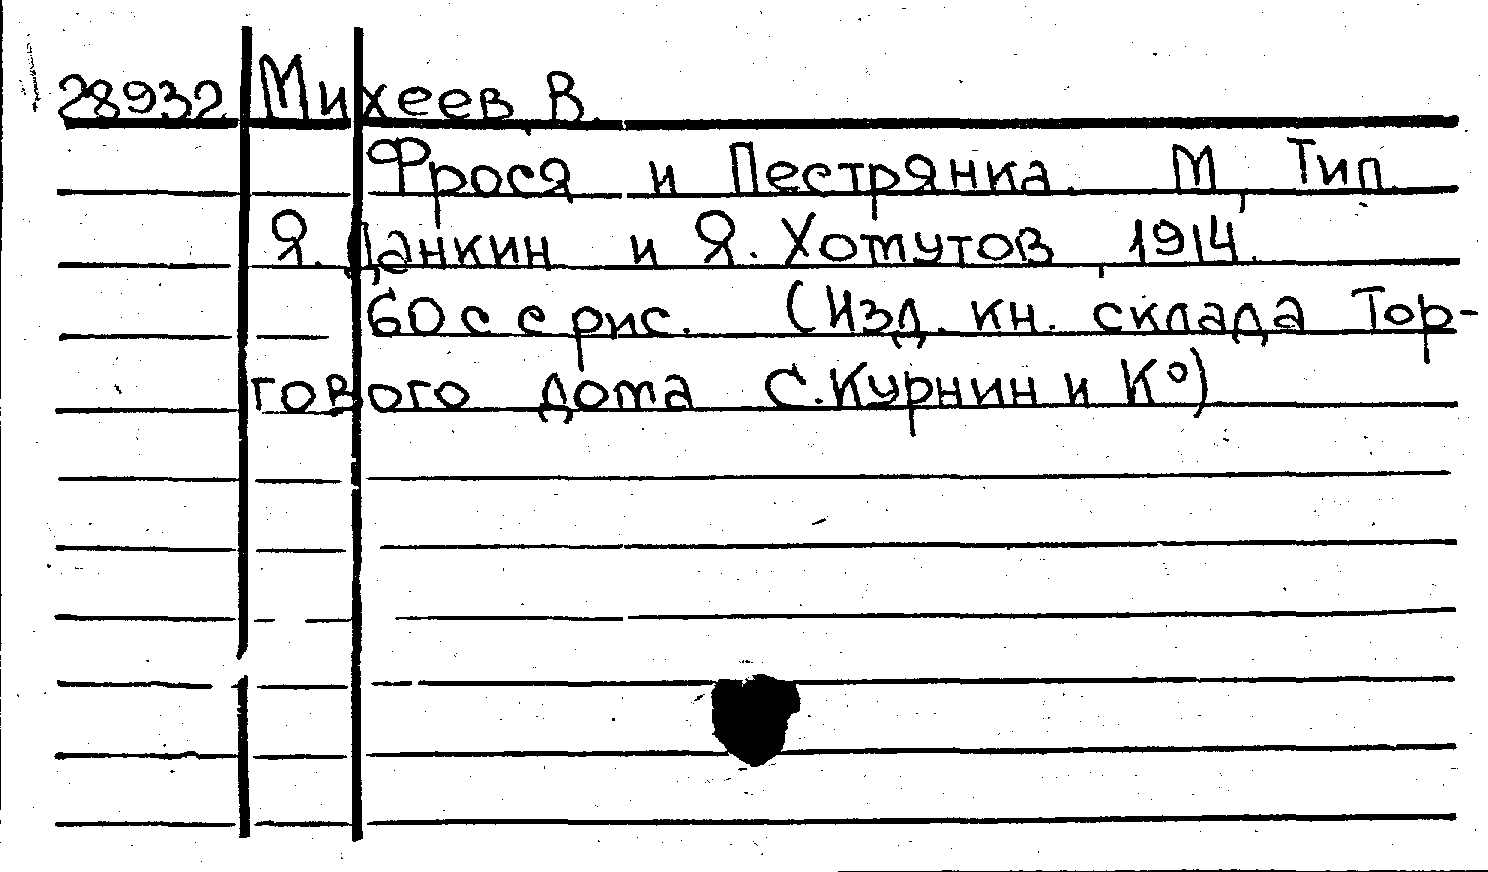 28932 Михеев В.
Фрося и Пестрянка. М, Тип.
Я. Данкин и Я. Хомутов, 1914.
60 с с рис. (Изд. кн. склада Тор-
гового дома С. Курнин и К°)